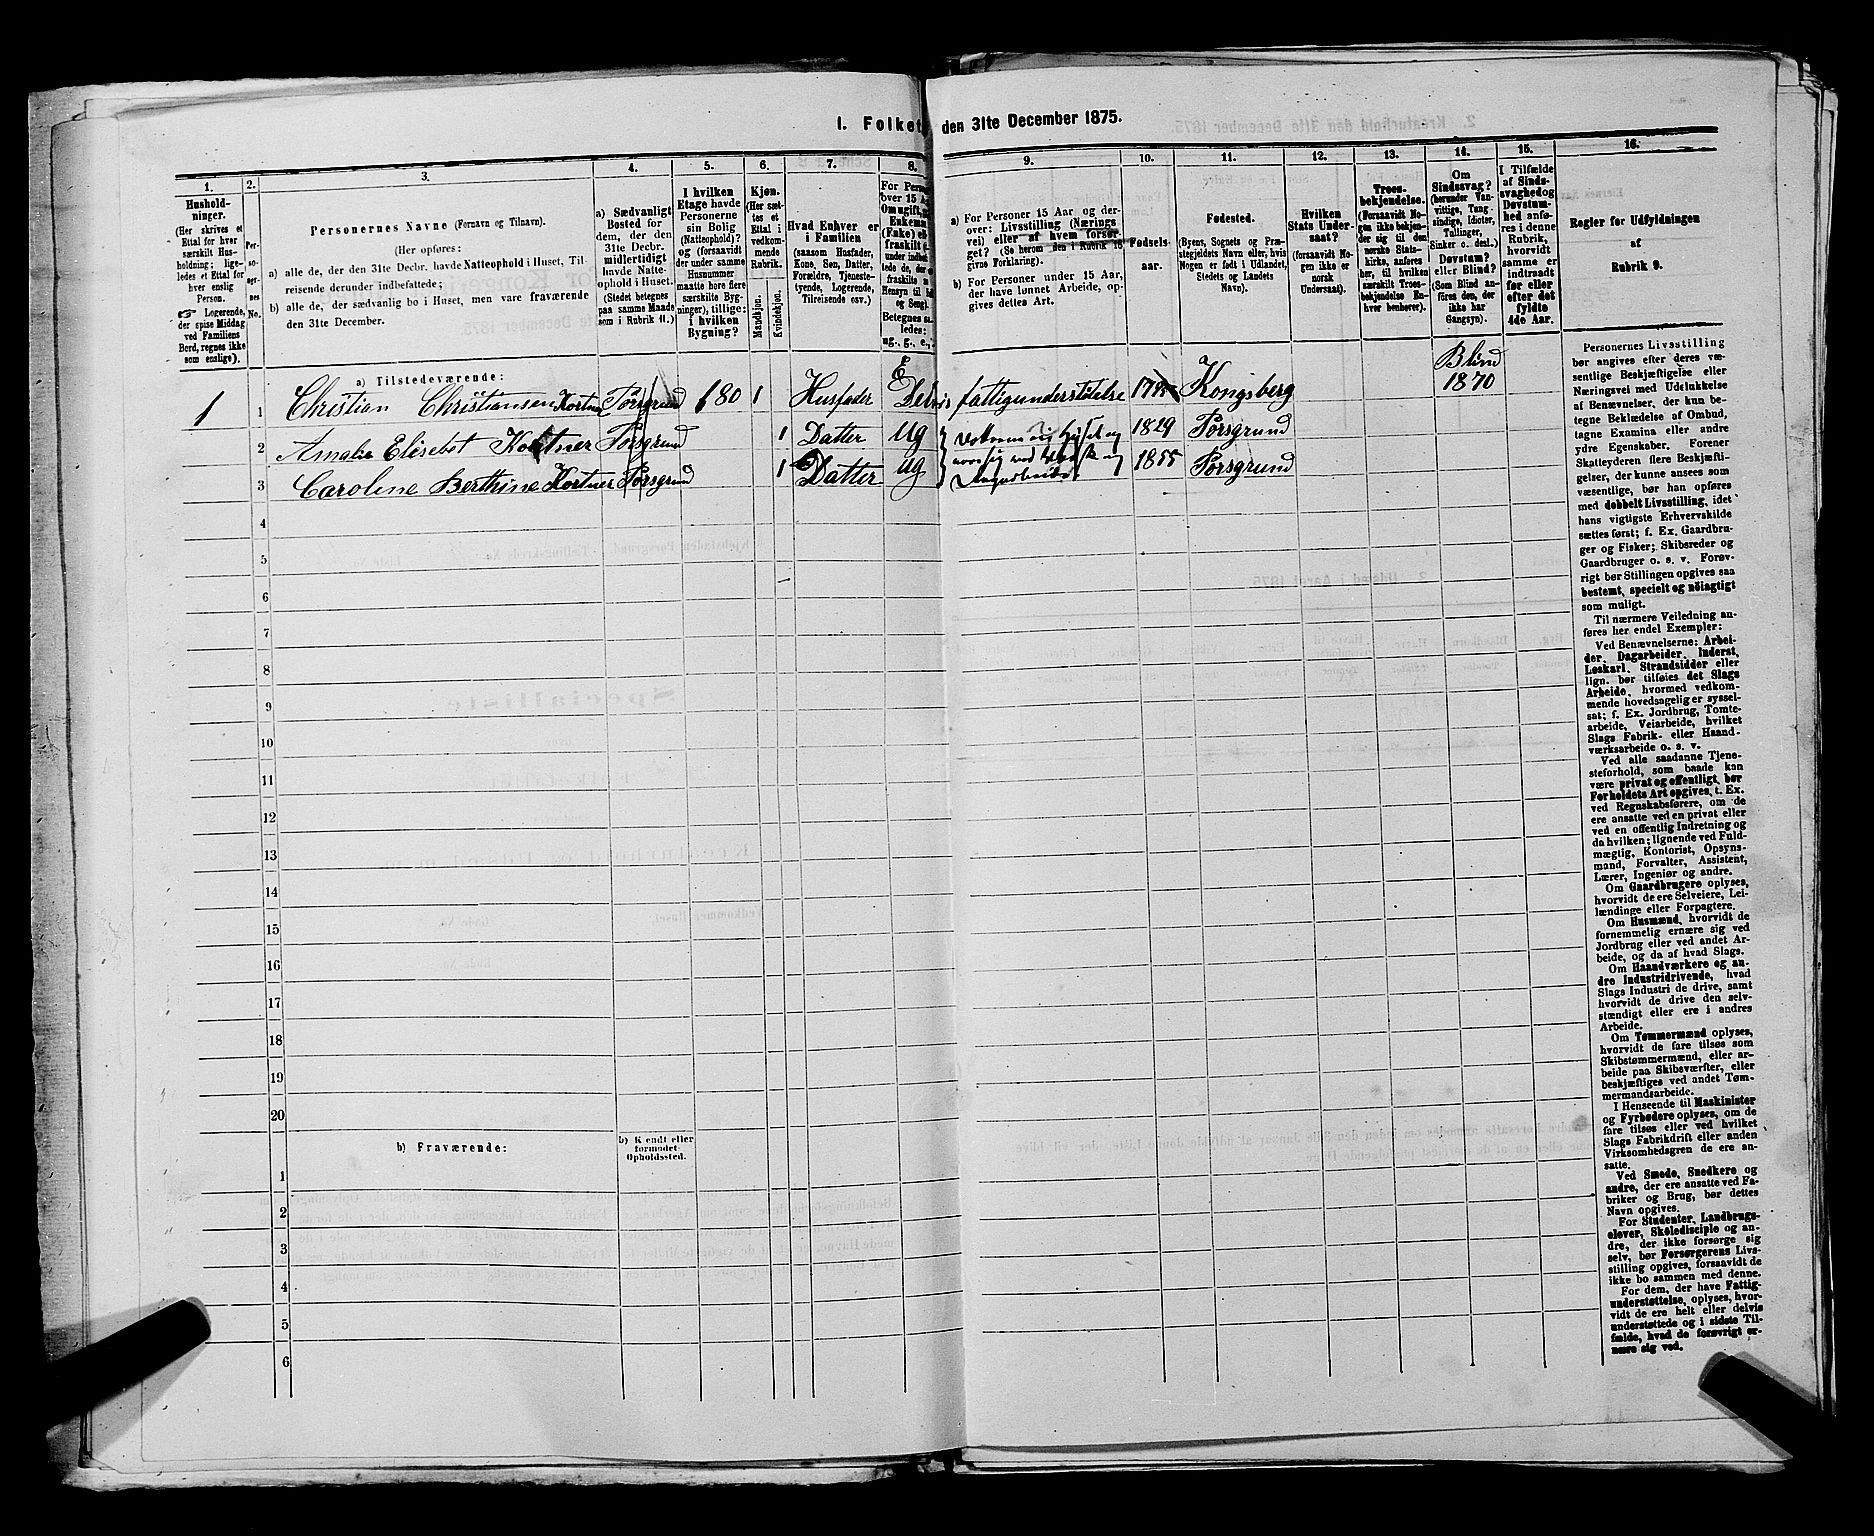 I. Folket
den 31te December 1875.
1.
2.
3.
4.
5.
6.
7.
8.
9.
10.
11.
12.
13.
14.
15.
16.
Hushold-
ninger.
(Her skrives et
Ettal for hver
særskilt Hus-
holdning; lige-
ledes et Ettal for
hver enslig
Person.
☞ Logerende,
der spise Middag
ved Familiens
Bord, regnes ikke
som enslige).
Per-
so-
ner-
nes
No.
Personernes Navne (Fornavn og Tilnavn).
(Her opføres:
a) alle de, der den 31te Decbr. havde Natteophold i Huset, Til-
reisende derunder indbefattede;
b) alle de, der sædvanlig bo i Huset, men vare fraværende
den 31te December.
a) Sædvanligt
Bosted for
dem, der den
31te Decbr.
midlertidigt
havde Natte-
ophold i Huset.
(Stedet betegnes
paa samme Maade
som i Rubrik 11.)
I hvilken
Etage havde
Personerne
sin Bolig
(Natteophold)?
og (forsaavidt
der under samme
Husnummer
maatte høre flere
særskilte Byg-
ninger), tillige:
i hvilken
Bygning?
Kjøn.
(Her sæt-
tes et
Ettal i
vedkom-
mende
Rubrik.
Mandkjøn.
Kvindekjøn.
Hvad Enhver er
i Familien
(saasom Husfader,
Kone, Søn, Datter,
Forældre, Tjeneste-
tyende, Logerende,
Tilreisende osv.)
For Pers
over 15 A
Om ugift, g
Enkema
(Fake) el
fraskilt
Betegnes sa-
ledes:
ug., g., e.,
a) For Personer 15 Aar og der-
over: Livsstilling (Nærings-
vei) eller af hvem forsør-
get? (Se herom den i Rubrik 16
givne Forklaring).
b) For Personer under 15 Aar,
der have lønnet Arbeide, op-
gives dettes Art.
Fødsels-
aar.
Fødested.
(Byens, Sognets og Præ-
stegjeldets Navn eller, hvis
Nogen er født i Udlandet,
Stedets og Landets
Navn).
Hvilken
Stats Under-
saat?
(forsaavidt No-
gen ikke er
norsk
Undersaat).
Troes-
bekjendelse.
(Forsaavidt No-
gen ikke bekjen-
der sig til den
norske Stats-
kirke, anføres
her, til hvilken
særskilt Troes-
bekjendelse En-
hver henhører).
Om
Sindssvag?
(herunder Van-
vittige, Tung-
sindige, Idioter,
Tullinger,
Sinker o. desl.)
Døvstum?
eller Blind?
(Som Blind an-
føres den, der
ikke har
Gangsyn).
I Tilfælde
af Sinds-
svaghed og
Døvstum-
hed anfø-
res i denne
Rubrik,
hvorvidt
samme er
indtraadt
før eller
efter det
fyldte
4de Aar.
Regler for Udfyldningen
af
Rubrik 9.
a) Tilstedeværende:
1 1 Christian Christiansen Kortner Porsgrund 180 1 Husfader E Delvis fattigunderstøttelse Kongsberg Blind 1870
2 Amalie Elisebet Kortner Porsgrund 1 Datter Ug 1829 Porsgrund
3 Caroline Berthine Kortner Porsgrund 1 Datter Ug 1855 Porsgrund
4
5
6
7
8
9
10
11
12
13
14
15
16
17
18
19
20
b) Fraværende:
b) Kjendt eller
formodet
Opholdssted.
1
2
3
4
5
6
Personernes Livsstilling
bør angives efter deres væ-
sentlige Beskjæftigelse eller
Næringsvei med Udelukkelse
af Benævnelser, der kun be-
tegne Beklædelse af Ombud,
tagne Examina eller andre
ydre Egenskaber. Forener
Skatteyderen flere Beskjæfti-
gelser, der kunne ansees som
væsentlige, bør han opføres
med dobbelt Livsstilling, idet
hans vigtigste Erhvervskilde
sættes først; f. Ex. Gaardbru-
ger og Fisker; Skibsreder og
Gaardbruger o. s. v. Forøv-
rigt bør Stillingen opgives saa
bestemt, specielt og nøiagtigt
som muligt.
Til nærmere Veiledning an-
føres her endel Exempler:
Ved Benævnelserne: Arbei-
der, Dagarbeider, Inderst,
Løskarl, Strandsidder eller
lign. bør tilføies det Slags
Arbeide, hvormed vedkom-
mende hovedsagelig er syssel-
sat; f. Ex. Jordbrug, Tomte-
arbeide, Veiarbeide, hvilket
Slags Fabrik- eller Haand-
værksarbeide o. s. v.
Ved alle saadanne Tjene-
steforhold, som baade kan
være privat og offentligt, bør
Forholdets Art opgives, t. Ex.
ved Regnskabsførere, om de
ere ansatte ved en privat eller
ved en offentlig Indretning og
da hvilken; lignende ved Fuld-
mægtig, Kontorist, Opsyns-
mand, Forvalter, Assistent,
Lærer, Ingeniør og andre.
Om Gaardbrugere oplyses,
hvorvidt de ere Selveiere, Lei-
lændinge eller Forpagtere.
Om Husmænd, hvorvidt de
fornemmelig ernære sig ved
Jordbrug eller ved andet Ar-
beide, og da af hvad Slags.
Om Haandværkere og an-
dre Industridrivende, hvad
Slags Industri de drive, samt
hvorvidt de drive den selv-
stændigt eller ere i andres
Arbeide.
Om Tømmermænd oplyses,
hvorvidt de fare tilsøs som
Skibstømmermænd, eller ar-
beide paa Skibsværfter, eller
beskjæftiges ved andet Tøm-
mermandsarbeide.
I Henseende til Maskinister
og Fyrbødere oplyses, om de
fare tilsøs eller ved hvilket
Slags Fabrikdrift eller anden
Virksomhedsgren de ere an-
satte.
Ved Smede, Snedkere og
andre, der ere ansatte ved Fa-
briker og Brug, bør dettes
Navn opgives.
For Studenter, Landbrugs-
elever, Skoledisciple og an-
dre, der ikke forsørge sig
selv, bør Forsørgerens Livs-
stilling opgives, forsaavidt de
ikke bo sammen med denne.
For dem, der have Fattig-
understøttelse, oplyses, hvor-
vidt de ere helt eller delvis
understøttede og i sidste Til-
fælde, hvad de forøvrigt er-
nære sig ved.